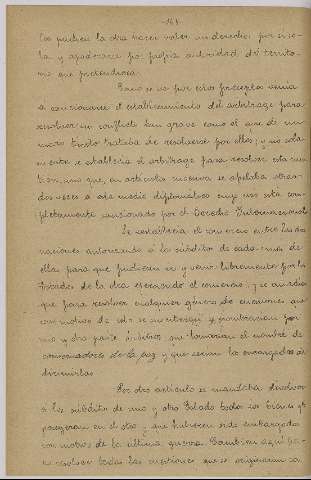 los pueden la otra hacer valer un derecho por si so-
la y apoderarse por propia autoridad del territo-
rio que pretendiera.
Como se ve por este precepto venia
a sancionarse el establecimiento del arbitrage para
resolver un conflicto tan grave como el que de un
mero trataba de resolverse por ellos; y no sola
mente se establecia el arbitrage para resolver esta cues
tion, sino que, en articulo sucesivo se apelaba otras
dos veces a este medio diplomatico cuyo uso esta com-
pletamente sancionado por el Derecho Internacional
Se restablecia el comercio entre las dos
naciones autorizando a los subditos de cada una de
ellas para que pudieran ir y venir libremente por los
Estados de la otra ejerciendo el comercio, y se añadia
que para resolver cualquier género de cuestiones que
con motivo de el se suscitasen se nombraran por
una y otra parte arbitros que tomarian el nombre de
conservadores de la paz y que serian los encargados de
dirimirlas
Por otro articulo se mandaba devolver
a los subditos de uno y otro Estado todos los bienes que
poseyeran en el otro y que hubieran sido embargados
con motivo de la ultima guerra. Tambien aqui pa-
ra resolver todas las cuestiones que se originaran so-